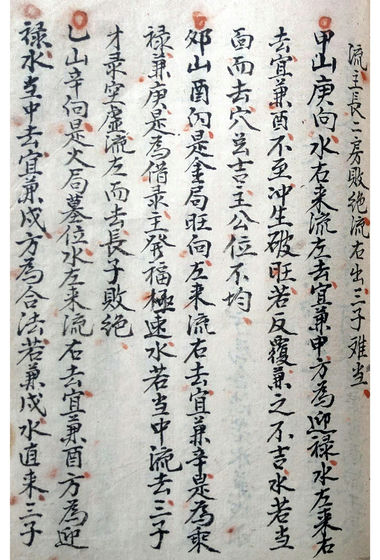 流主長二房敗絶流右出三子难当
甲山庚向水右来流左去宜兼甲方為迎禄水左来右
去宜兼酉不至冲生破旺若反覆兼之不吉水若当
面而去穴总吉主公位不均
卯山酉向是金局旺向左来流右去宜兼辛是為乘
禄兼庚是為借录主發福極速水若当中流去三子
才录空虚流左而去長子敗絶
乙山辛向是火局墓位水左来流右去宜兼酉方為迎
禄水当中去宜兼戌方為合法若兼戌水直来三子